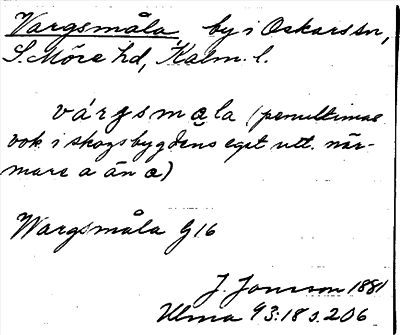 Vargsmåla, by i Oskars sn,
S. Möre hd, Kalm. l.
várgsmala (penultimas
vok i skogsbygdens eget utt. när-
mare a än a)
Wargsmåla G16
J. Jonsson 1881
Ulma 93:18 s. 206